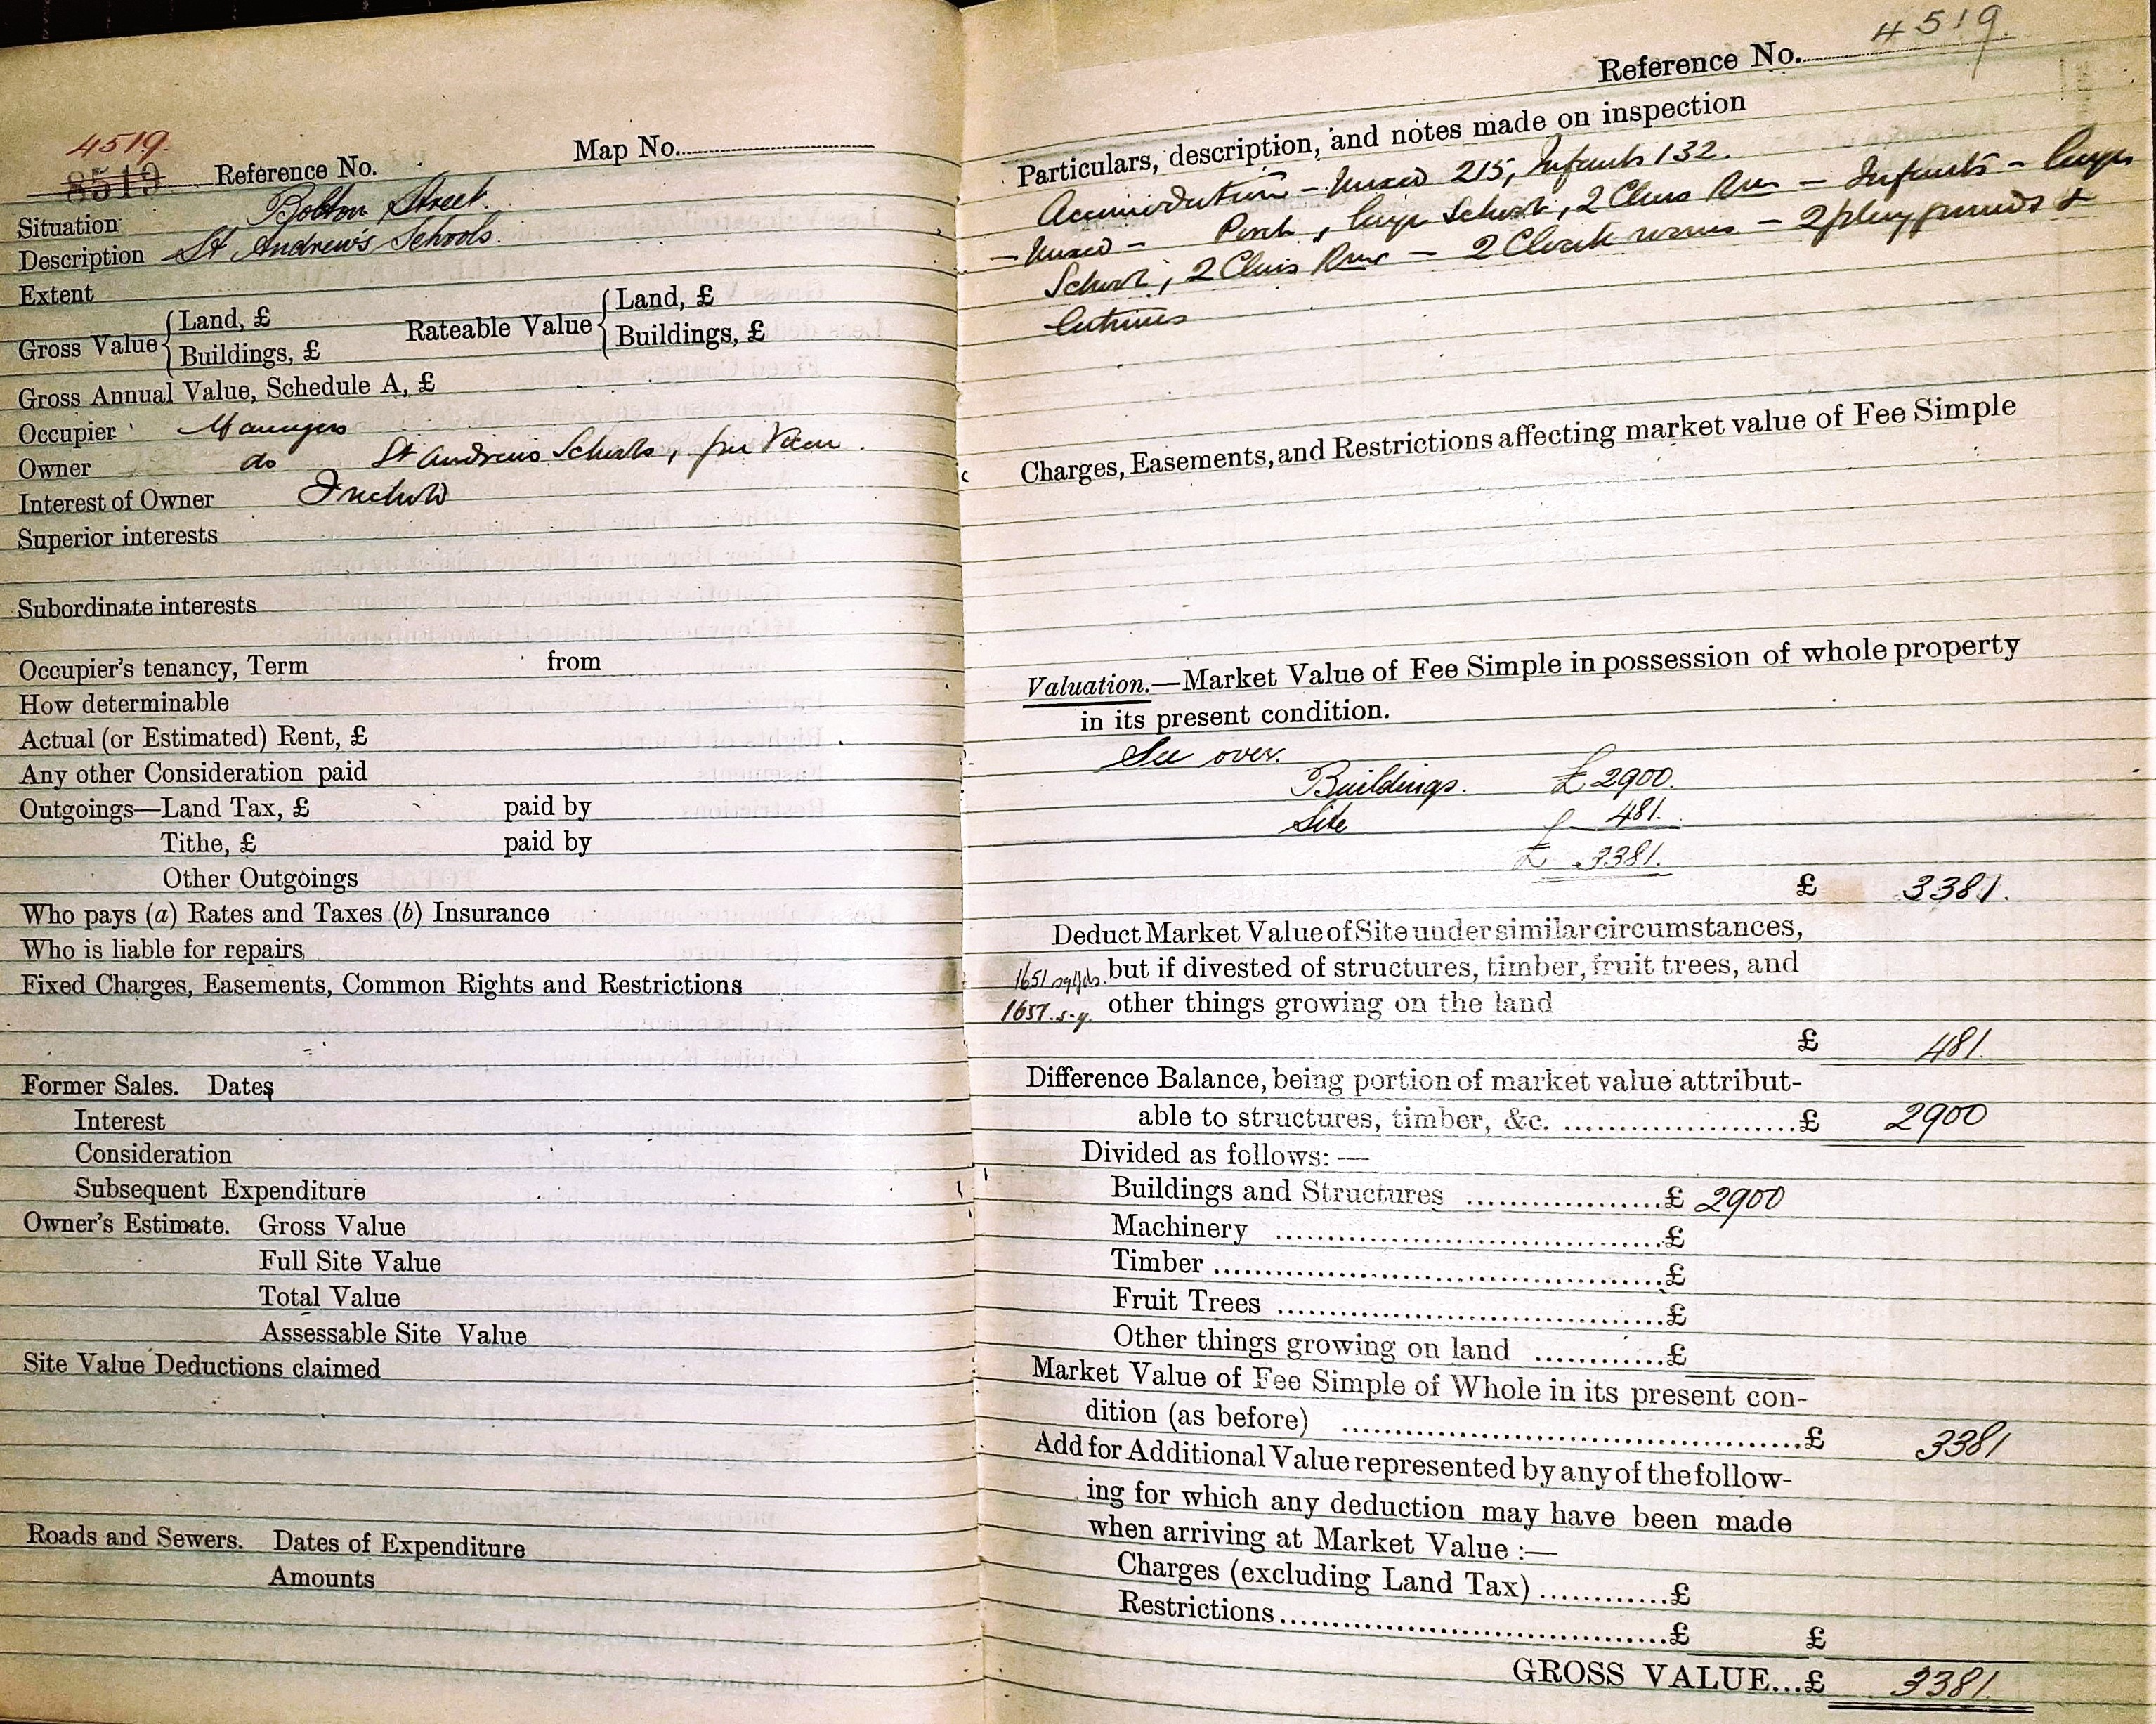 4519.
8519 Reference No. Map No.
Situation Bolton Street.
Description St Andrew's Schools.
Extent
Gross Value { Land, £ Rateable Value { Land, £
Buildings, £ Buildings, £
Gross Annual Value, Schedule A, £
Occupier Managers
Owner do St Andrews Schools, per
Interest of Owner Freehold
Superior interests
Subordinate interests
Occupier's tenancy, Term from
How determinable
Actual (or Estimated) Rent, £
Any other Consideration paid
Outgoings—Land Tax, £ paid by
Tithe, £ paid by
Other Outgoings
Who pays (a) Rates and Taxes (b) Insurance
Who is liable for repairs
Fixed Charges, Easements, Common Rights and Restrictions
Former Sales. Dates
Interest
Consideration
Subsequent Expenditure
Owner's Estimate. Gross Value
Full Site Value
Total Value
Assessable Site Value
Site Value Deductions claimed
Roads and Sewers. Dates of Expenditure
Amounts
Reference No. 4519.
Particulars, description, and notes made on inspection
Accomodation – Mixed 215, Infants 132.
– Mixed – Porch, large School, 2 Class Rms – Infants – large
School, 2 Class Rms – 2 Cloak rooms – 2 playgrounds &
latrines
Charges, Easements, and Restrictions affecting market value of Fee Simple
Valuation.—Market Value of Fee Simple in possession of whole property
in its present condition.
See over.
Buildings. £ 2900.
Site £ 481.
£ 3381.
£ 3381.
Deduct Market Value of Site under similar circumstances,
1651 sq yds. but if divested of structures, timber, fruit trees, and
1657. s.y. other things growing on the land
£ 481.
Difference Balance, being portion of market value attribut-
able to structures, timber, &c. ....................£ 2900
Divided as follows: —
Buildings and Structures ..................£ 2900
Machinery ....................................£
Timber ..........................................£
Fruit Trees ....................................£
Other things growing on land ............£
Market Value of Fee Simple of Whole in its present con-
dition (as before) ............................................£ 3381
Add for Additional Value represented by any of the follow-
ing for which any deduction may have been made
when arriving at Market Value :—
Charges (excluding Land Tax) ............£
Restrictions ....................................£ £
GROSS VALUE...£ 3381.